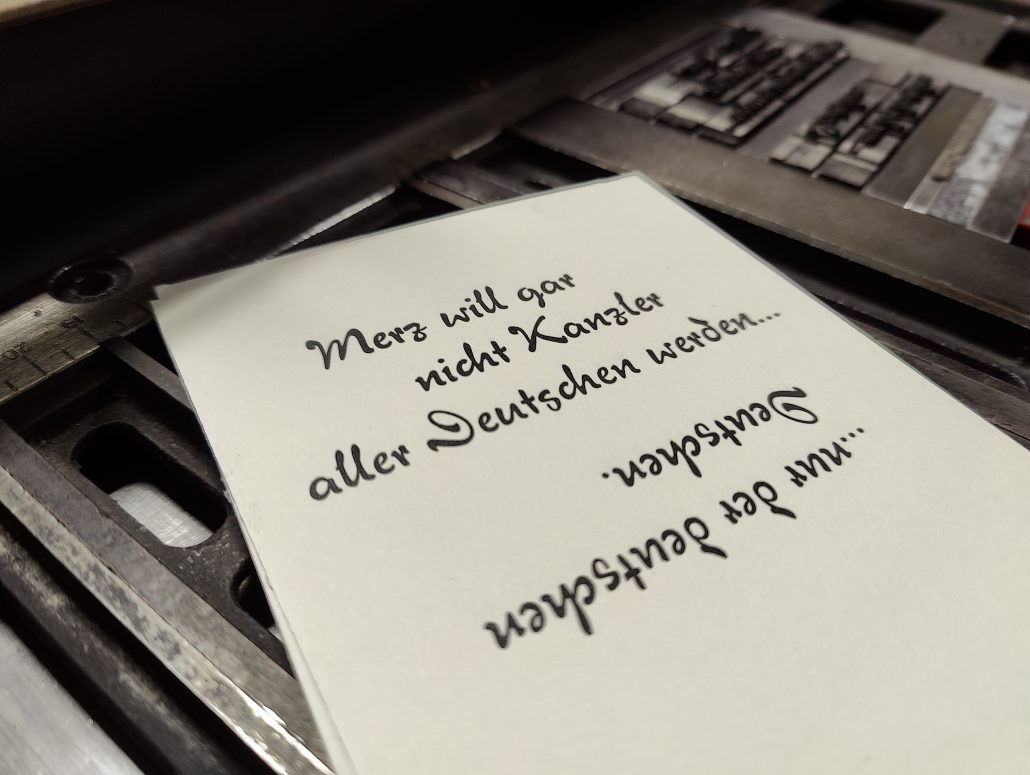 Merz will gar
nicht Kanzler
aller Deutschen werden...
...nur der deutschen
Deutschen.